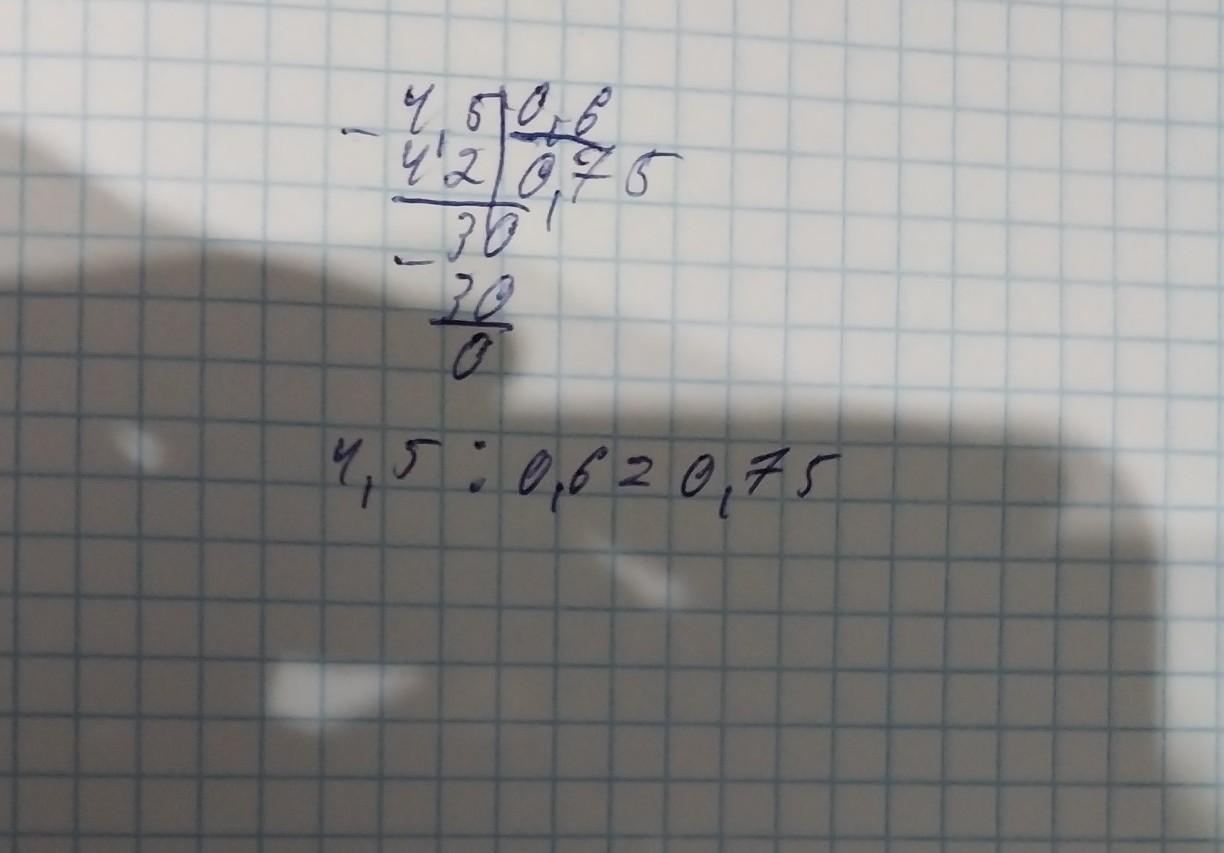 - 4,5 | 0,6
42 | 0,75
- 30
30
0
4,5 : 0,6 = 0,75